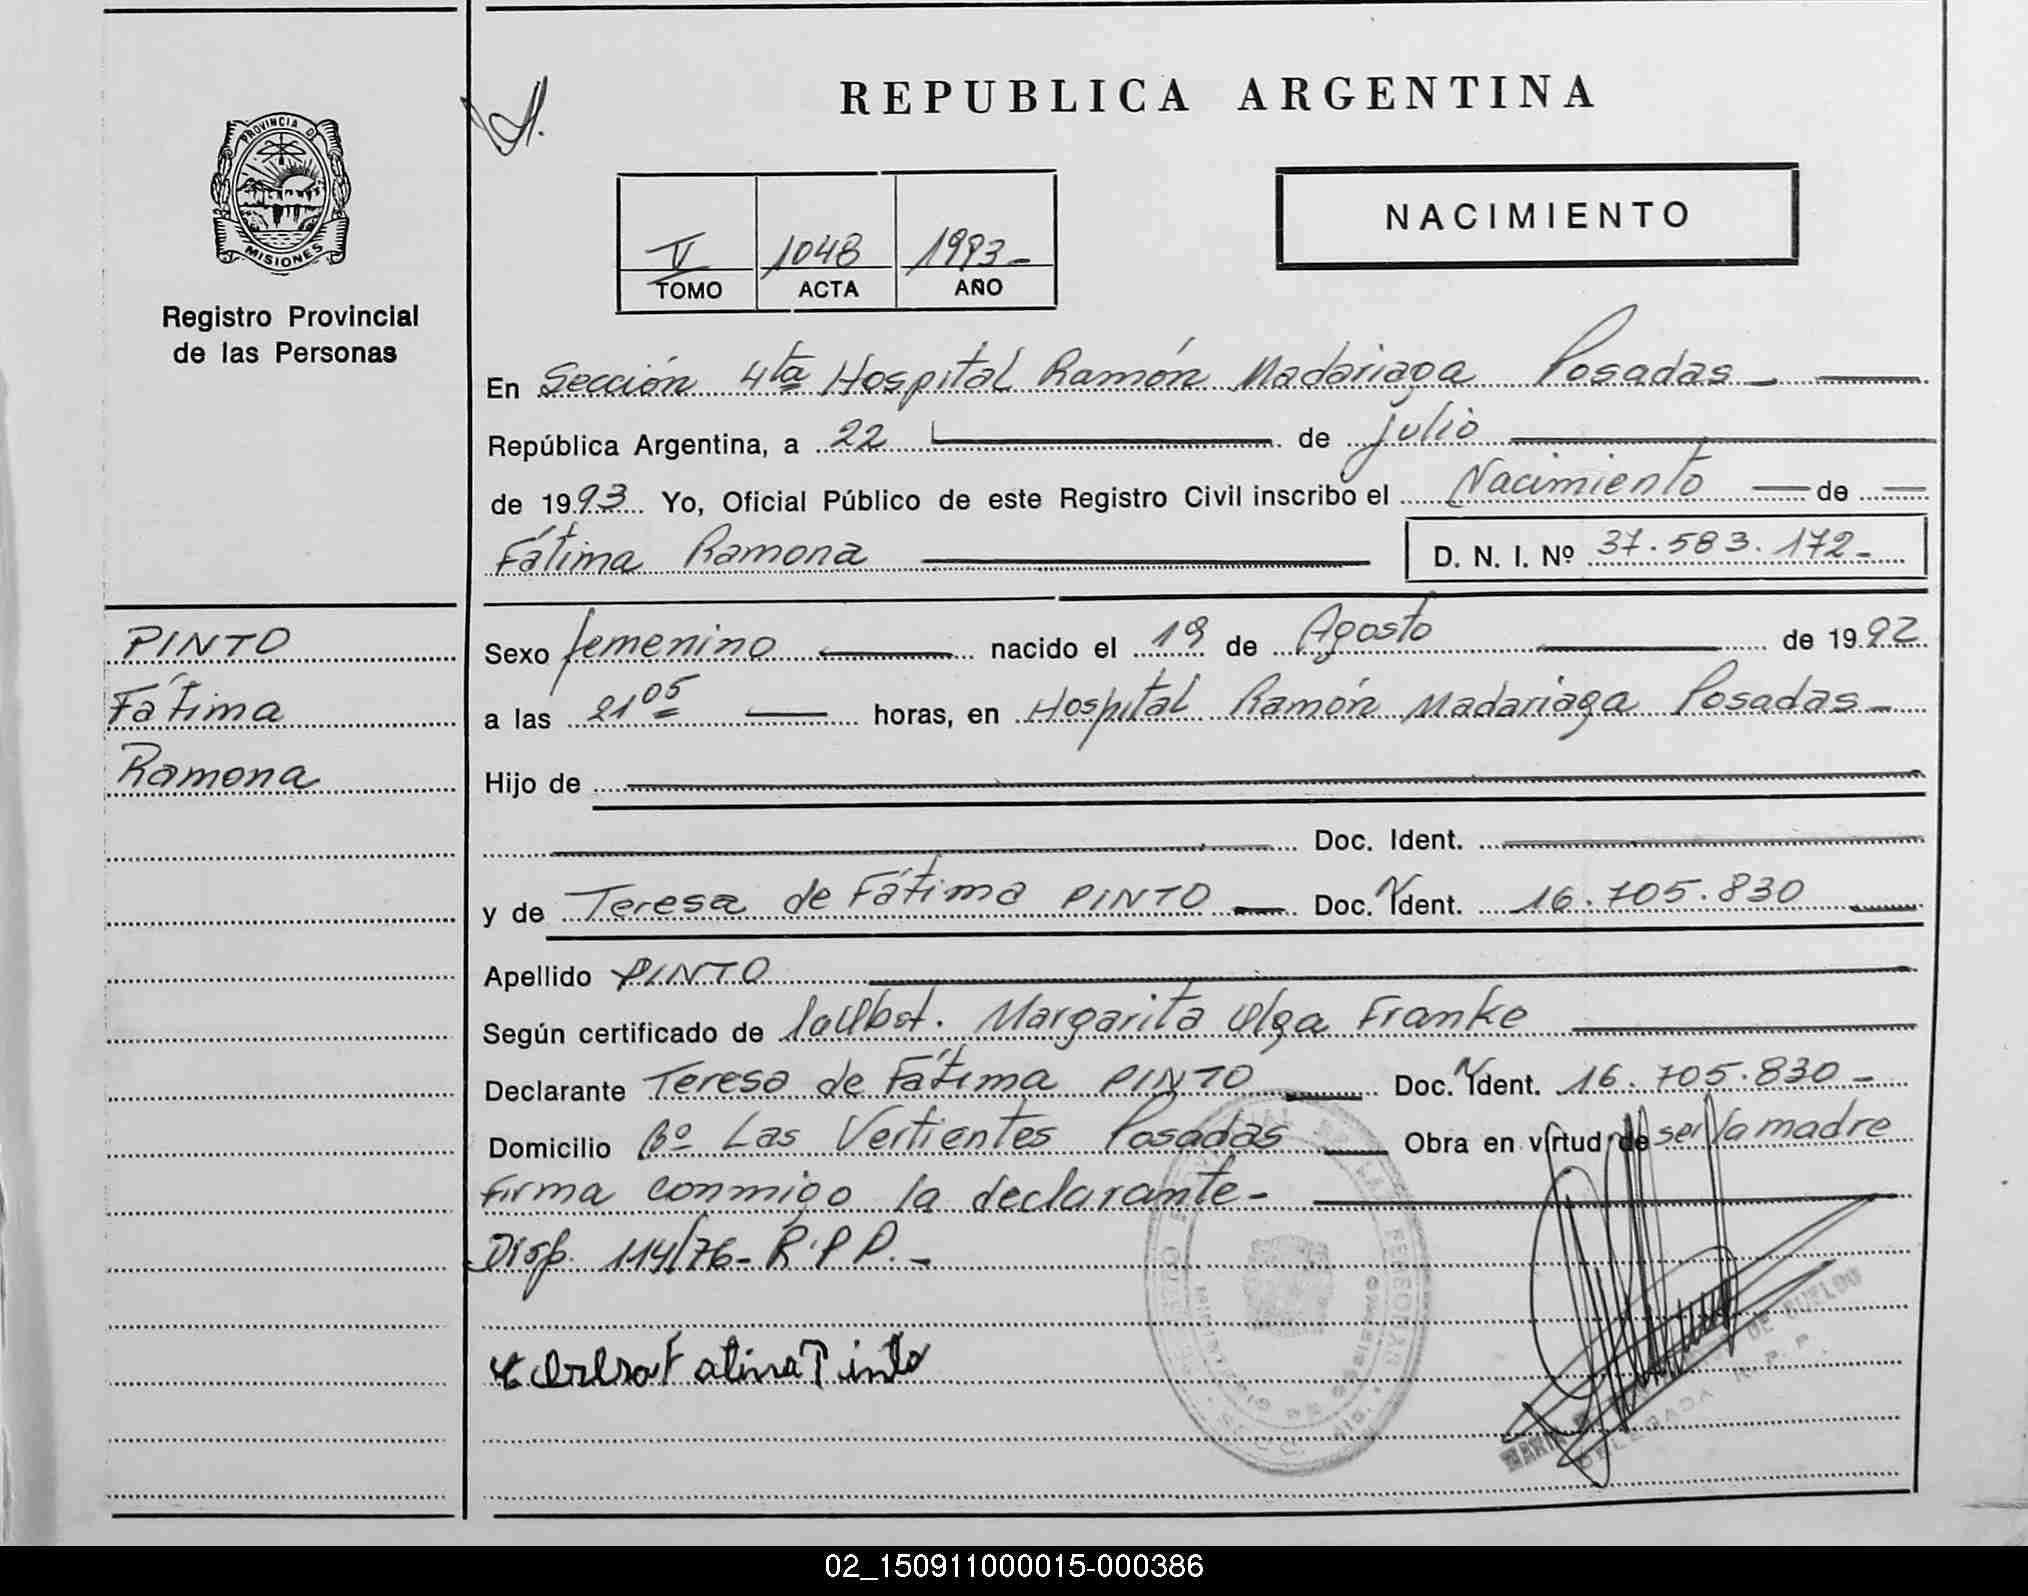 REPUBLICA ARGENTINA
PROVINCIA D
MISIONES
Registro Provincial
de las Personas
V 1048 1993-
TOMO ACTA AÑO
NACIMIENTO
En Sección 4ta Hospital Ramón Madariaga Posadas -
República Argentina, a 22 de julio
de 1993 Yo, Oficial Público de este Registro Civil inscribo el Nacimiento de
Fátima Ramona D. N. I. Nº 37.583.172-
PINTO
Fátima
Ramona
Sexo femenino nacido el 19 de Agosto de 1992
a las 21 05 horas, en Hospital Ramón Madariaga Posadas -
Hijo de
Doc. Ident.
y de Teresa de Fátima PINTO Doc. Ident. 16.705.830
Apellido PINTO
Según certificado de la Obst. Margarita Olga Franke
Declarante Teresa de Fátima PINTO Doc. Ident. 16.705.830-
Domicilio Bº Las Vertientes Posadas Obra en virtud de ser la madre
firma conmigo la declarante-
Disp. 114/76- R.P.P.-
Fatima Pinto
DELEGADA R. P. P.
02_150911000015-000386